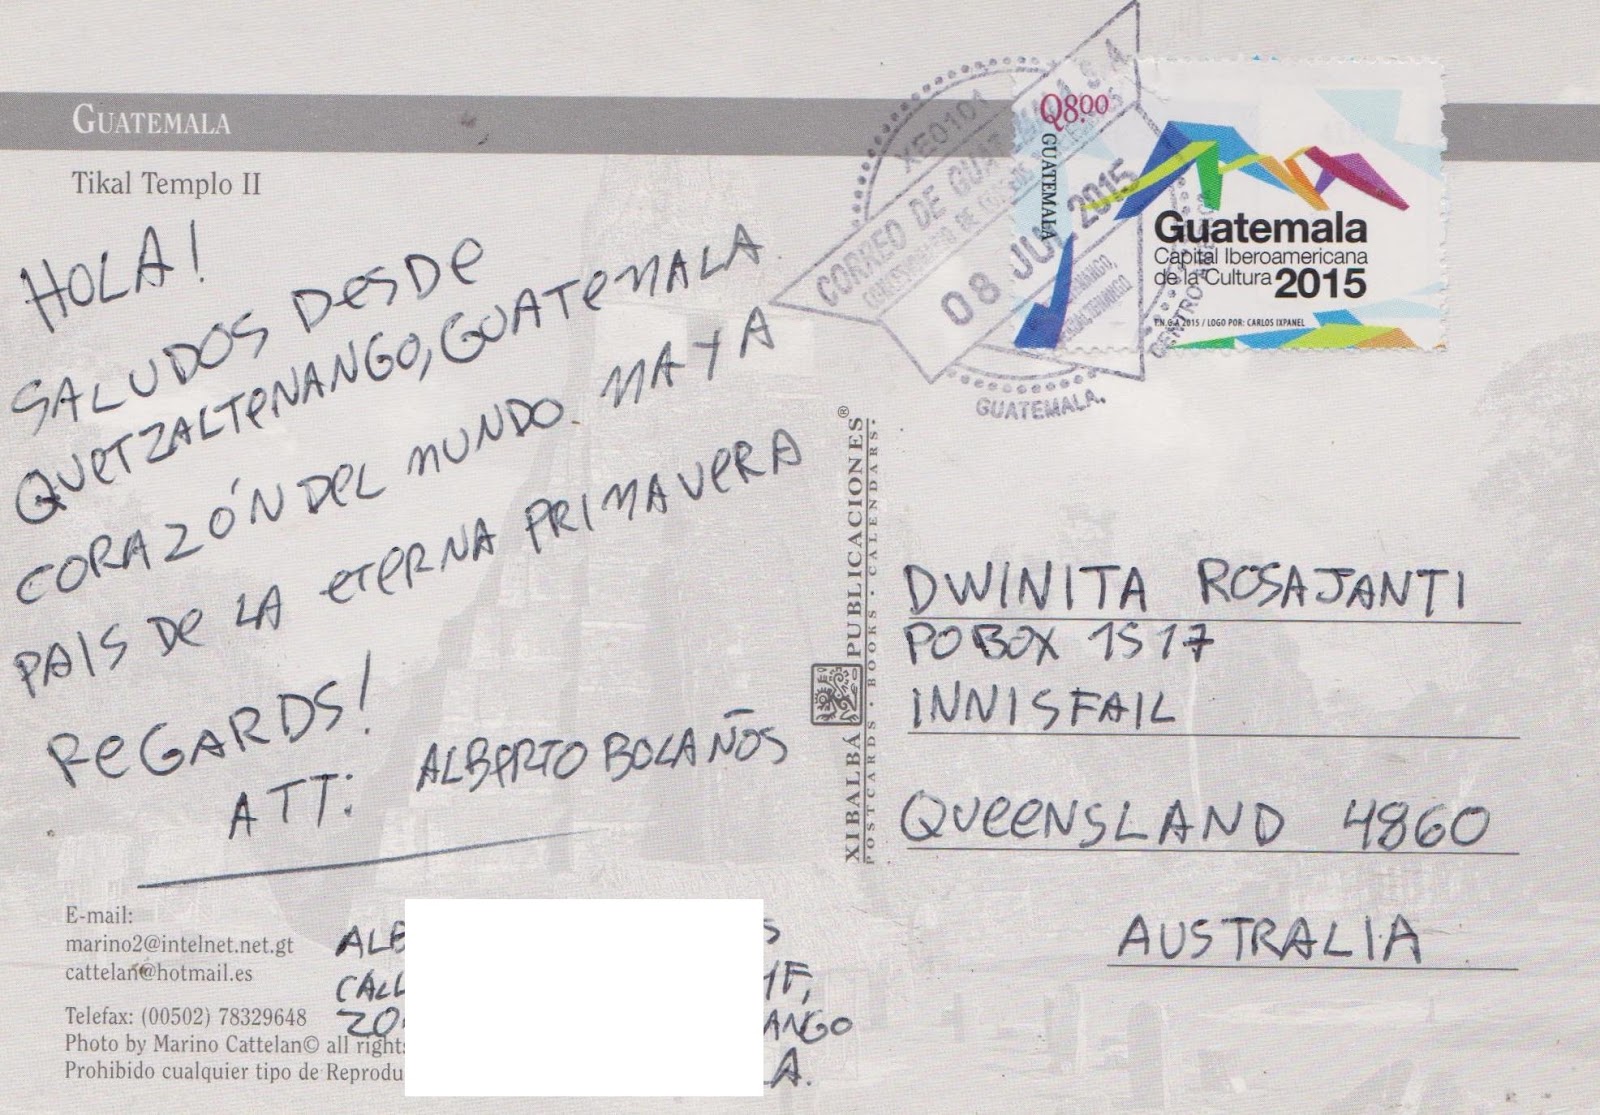 GUATEMALA
Tikal Templo II
HOLA!
SALUDOS DESDE
QUETZALTENANGO, GUATEMALA.
CORAZÓN DEL MUNDO MAYA
PAIS DE LA ETERNA PRIMAVERA
REGARDS!
ATT: ALBERTO BOLAÑOS
E-mail:
marino2@intelnet.net.gt
cattelan@hotmail.es
Telefax: (00502) 78329648
Photo by Marino Cattelan© all rights
Prohibido cualquier tipo de
XIBALBÁ PUBLICACIONES®
POSTCARDS · BOOKS · CALENDARS.
Q8.00
GUATEMALA
Guatemala
Capital Iberoamericana
de la Cultura 2015
T.N.G.A 2015 / LOGO POR: CARLOS IXPANEL
XE0101
CORREO DE
08 JUL 2015
GUATEMALA.
DWINITA ROSAJANTI
PO BOX 1517
INNISFAIL
QUEENSLAND 4860
AUSTRALIA